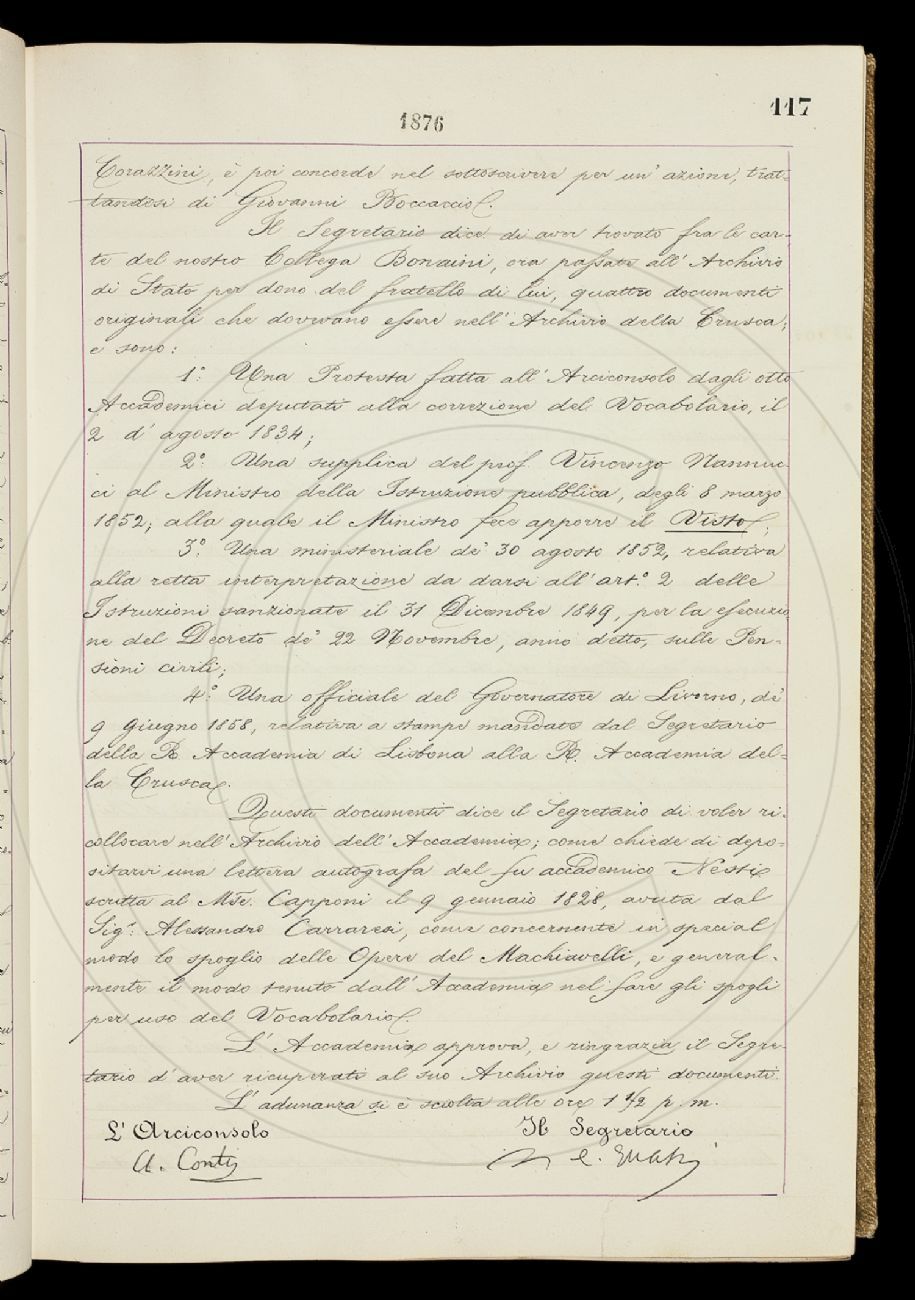 117
1876
Corazzini, è poi concorde nel sottoscrivere per un' azione, trat-
tandosi di Giovanni Boccaccio.
Il Segretario dice di aver trovato fra le car-
te del nostro Collega Bonaini, ora passate all' Archivio
di Stato per dono del fratello di lui, quattro documenti
originali che dovevano essere nell' Archivio della Crusca;
e sono:
1.° Una Protesta fatta all' Arciconsolo dagli otto
Accademici deputati alla correzione del Vocabolario, il
2 d' agosto 1834;
2.° Una supplica del prof. Vincenzo Nannuc-
ci al Ministro della Istruzione pubblica, degli 8 marzo
1852; alla quale il Ministro fece apporre il Visto;
3.° Una ministeriale de' 30 agosto 1852, relativa
alla retta interpretazione da darsi all' art.° 2 delle
Istruzioni sanzionate il 31 Dicembre 1849, per la esecuzio
ne del Decreto de' 22 Novembre, anno detto, sulle Pen-
sioni civili;
4.° Una officiale del Governatore di Livorno, de'
9 Giugno 1858, relativa a stampe mandate dal Segretario
della R. Accademia di Lisbona alla R. Accademia del-
la Crusca.
Questi documenti dice il Segretario di voler ri-
collocare nell' Archivio dell' Accademia; come chiede di depo-
sitarvi una lettera autografa del fu accademico Nesti
scritta al M.se Capponi il 9 gennaio 1828, avuta dal
Sig.r Alessandro Carraresi, come concernente in special
modo lo spoglio delle Opere del Machiavelli, e general-
mente il modo tenuto dall' Accademia nel fare gli spogli
per uso del Vocabolario.
L' Accademia approva, e ringrazia il Segre-
tario d' aver ricuperati al suo Archivio questi documenti.
L' adunanza si è sciolta alle ore 1 1/2 p. m.
L' Arciconsolo Il Segretario
A. Conti